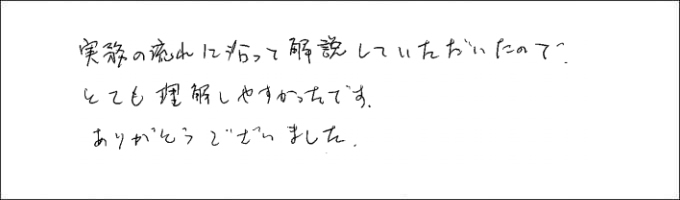 実務の流れに沿って解説していただいたので、
とても理解しやすかったです。
ありがとうございました。